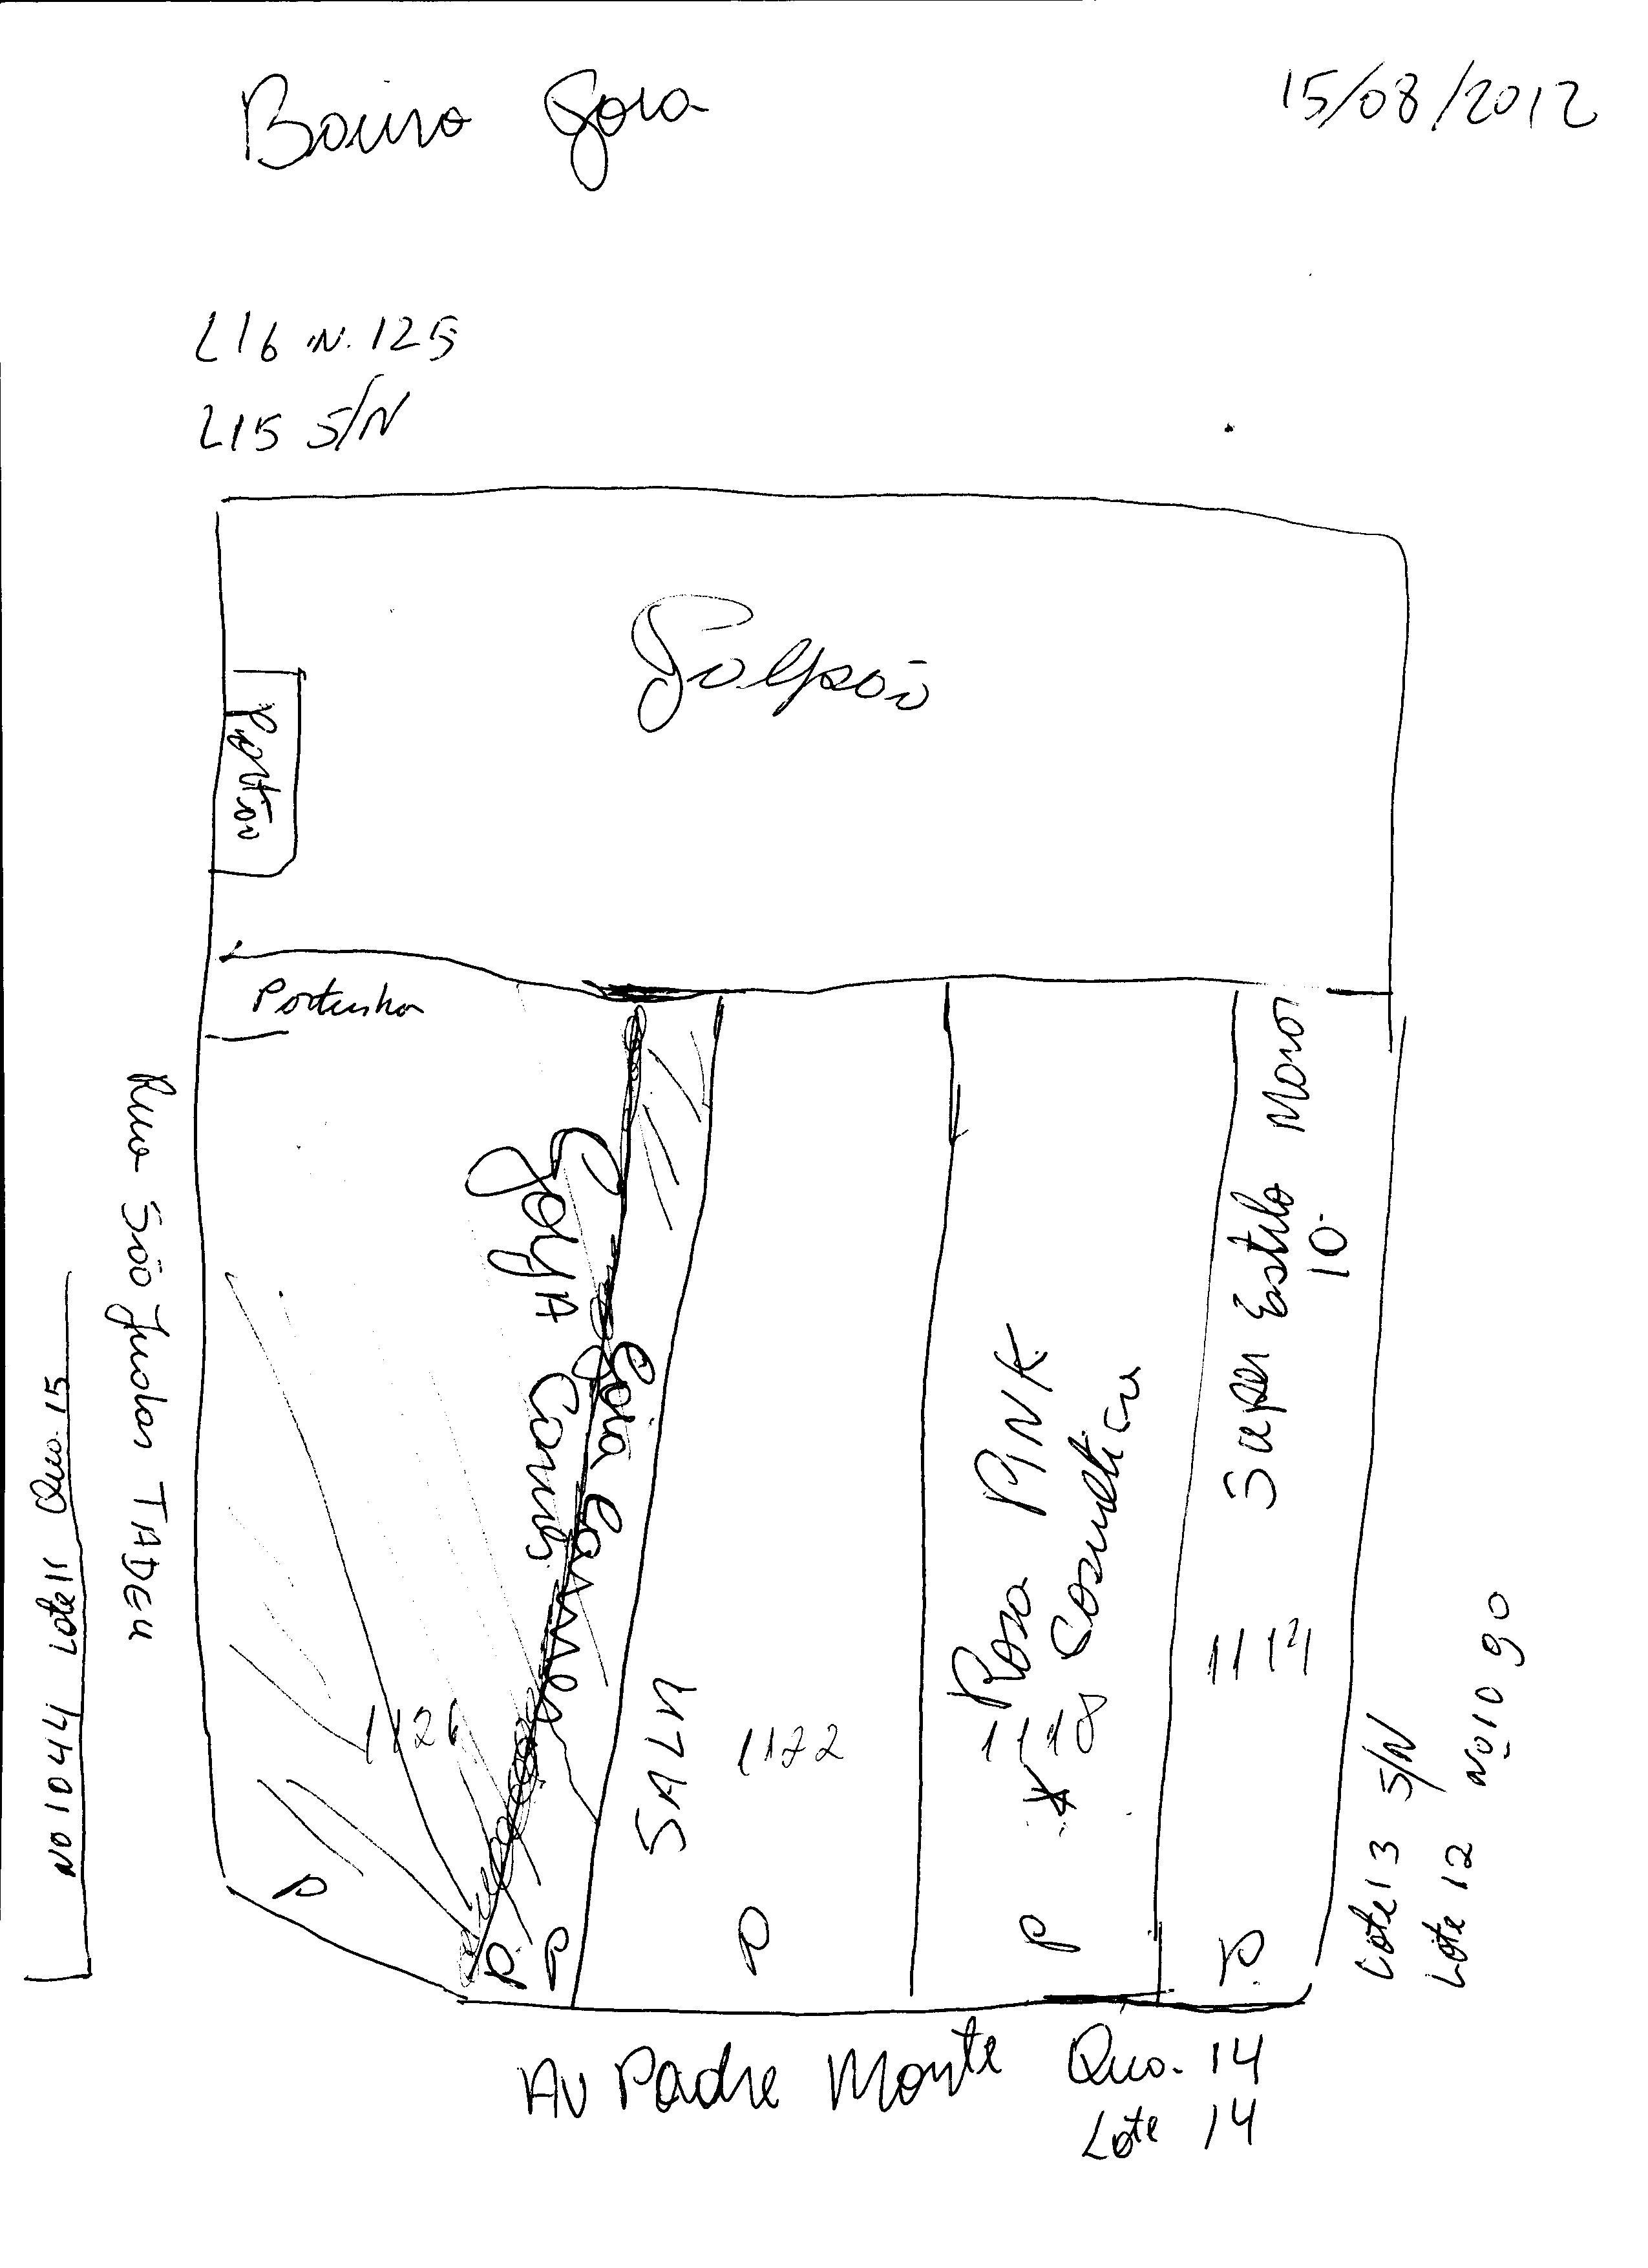 Bairro Goia
15/08/2012
L16 N. 125
L15 S/N
Galpão
Portão
Portinha
Rua São Judas TADEU
NO 1044 Lote 11 Qua. 15
GOIA Carnes
Goia Carnes
SALA
Rosa PINK
Cosmetico
Super Estilo Moron
10
1126
1122
1118
1114
P
P
P
P
P
P
Lote 13 S/N
Lote 12 No 1090
AV Padre Monte Qua. 14
Lote 14